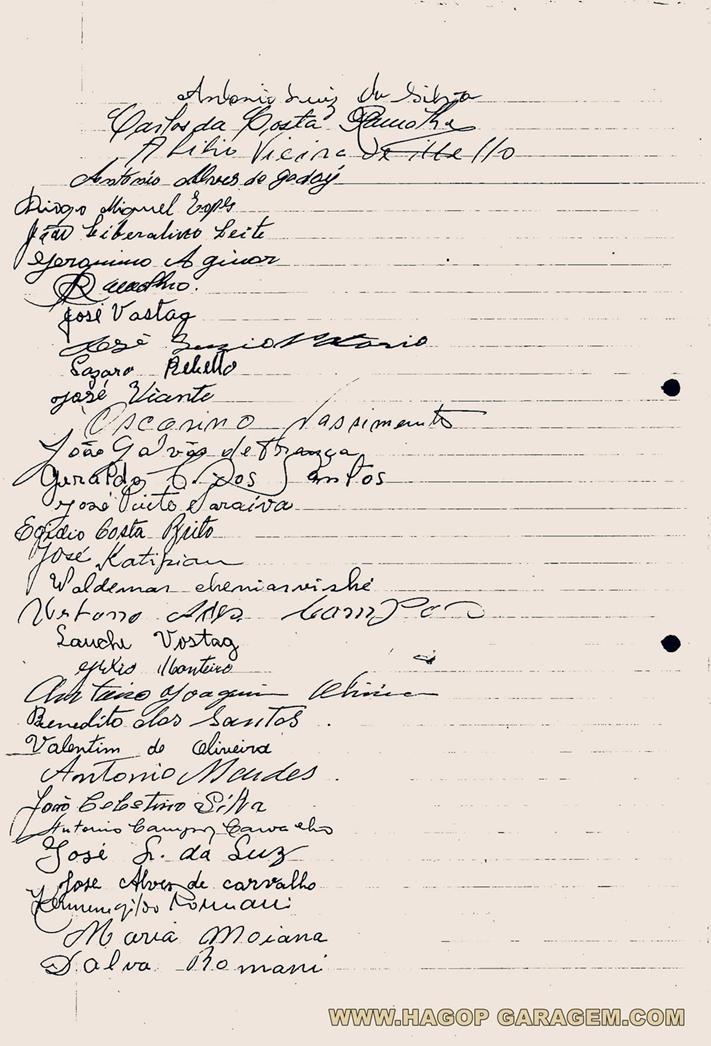 Antonio Luiz da Silva
Carlos da Costa Ramalho
Abilio Vieira de Mello
Antonio Alves de godoy
Diogo Miguel Lopes
João Liberalino Leite
Geronimo Aginor
Ramalho.
José Vastag
José
Lazaro Rebello
José Viante
Oscarino Nassimento
João Galvão de França
Geraldo C. dos Santos
José Pinto Saraiva
Egidio Costa Brito
José Katipian
Waldemar
Antonio
Vostag
Monteiro
Joaquim
Benedito dos Santos.
Valentim de Oliveira
Antonio Mendes.
João Celestino Silva
Antonio Campos Carvalho
José Fr. da Luz
José Alves de carvalho
Hermenegildo Romani
Maria Moiana
Dalva Romani
WWW.HAGOP GARAGEM.COM